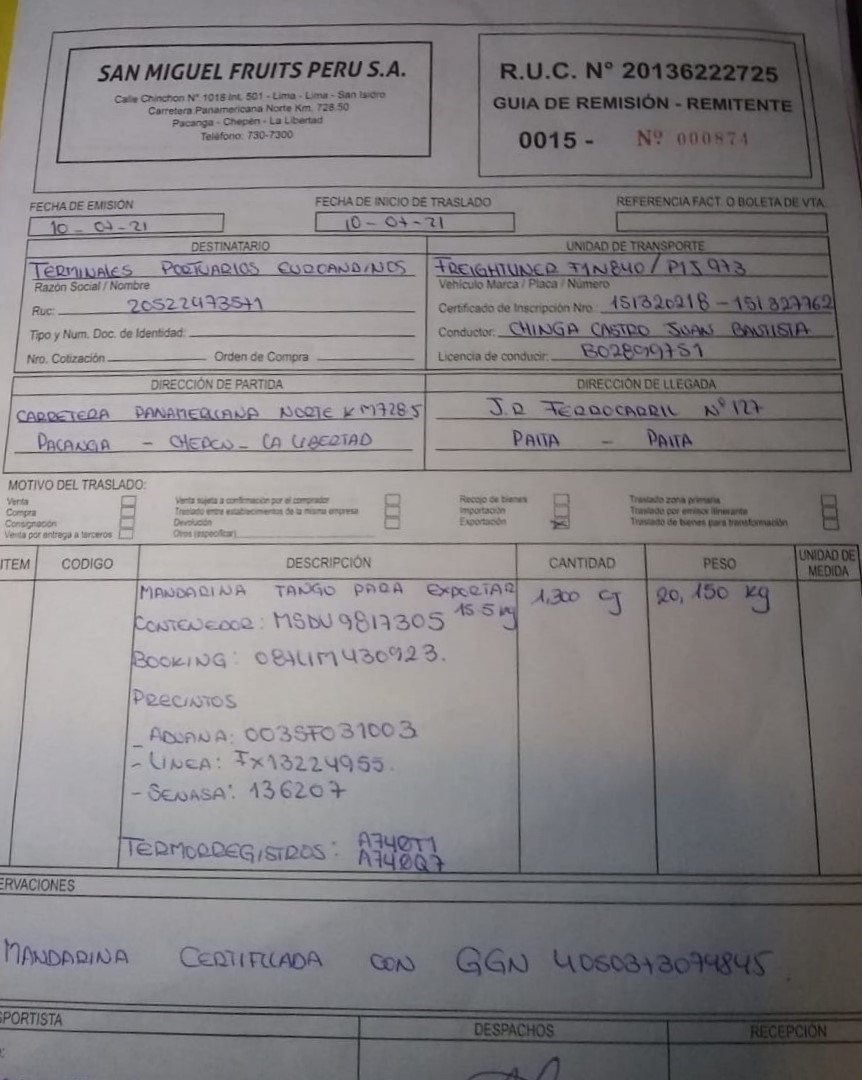 SAN MIGUEL FRUITS PERU S.A.
Calle Chinchon N° 1018 Int. 501 - Lima - Lima - San Isidro
Carretera Panamericana Norte Km. 728.50
Pacanga - Chepén - La Libertad
Teléfono: 730-7300
R.U.C. N° 20136222725
GUIA DE REMISIÓN - REMITENTE
0015 - Nº 000874
FECHA DE EMISIÓN
10-07-21
FECHA DE INICIO DE TRASLADO
10-07-21
REFERENCIA FACT. O BOLETA DE VTA.
DESTINATARIO
TERMINALES PORTUARIOS EUROANDINOS
Razón Social / Nombre
Ruc: 20522473571
Tipo y Num. Doc. de Identidad:
Nro. Cotización Orden de Compra
UNIDAD DE TRANSPORTE
FREIGHTLINER T1N840/P1J973
Vehículo Marca / Placa / Número
Certificado de Inscripción Nro: 151320218-151327762
Conductor: CHINGA CASTRO JUAN BAUTISTA
Licencia de conducir: B02899751
DIRECCIÓN DE PARTIDA
CARRETERA PANAMERICANA NORTE KM728.5
PACANGA - CHEPEN - LA LIBERTAD
DIRECCIÓN DE LLEGADA
J.R FERROCARRIL N° 127
PAITA - PAITA
MOTIVO DEL TRASLADO:
Venta
Compra
Consignación
Venta por entrega a terceros
Venta sujeta a confirmación por el comprador
Traslado entre establecimientos de la misma empresa
Devolución
Otros (especificar)
Recojo de bienes
Importación
Exportación
Traslado zona primaria
Traslado por emisor itinerante
Traslado de bienes para transformación
ITEM CODIGO DESCRIPCIÓN CANTIDAD PESO UNIDAD DE MEDIDA
MANDARINA TANGO PARA EXPORTAR 1,300 CJ 20,150 kg
15.5 kg
CONTENEDOR: MSDU9817305
BOOKING: 087LIM430923.
PRECINTOS
- ADUANA: 003SF031003
- LINEA: FX13224955.
- SENASA: 136207
TERMORREGISTROS: A740T1
A740Q7
ERVACIONES
MANDARINA CERTIFICADA CON GGN 4050373079845
SPORTISTA DESPACHOS RECEPCIÓN